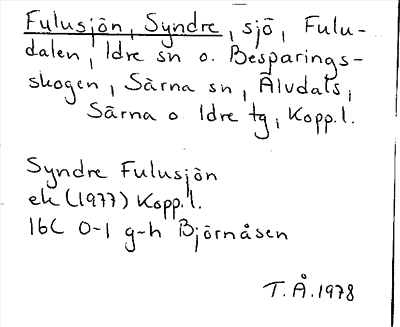 Fulusjön, Syndre, sjö, Fulu-
dalen, Idre sn o. Besparings-
skogen, Särna sn, Älvdals,
Särna o Idre tg, Kopp.l.
Syndre Fulusjön
ek (1977) Kopp.l.
16C 0-1 g-h Björnåsen
T.Å. 1978